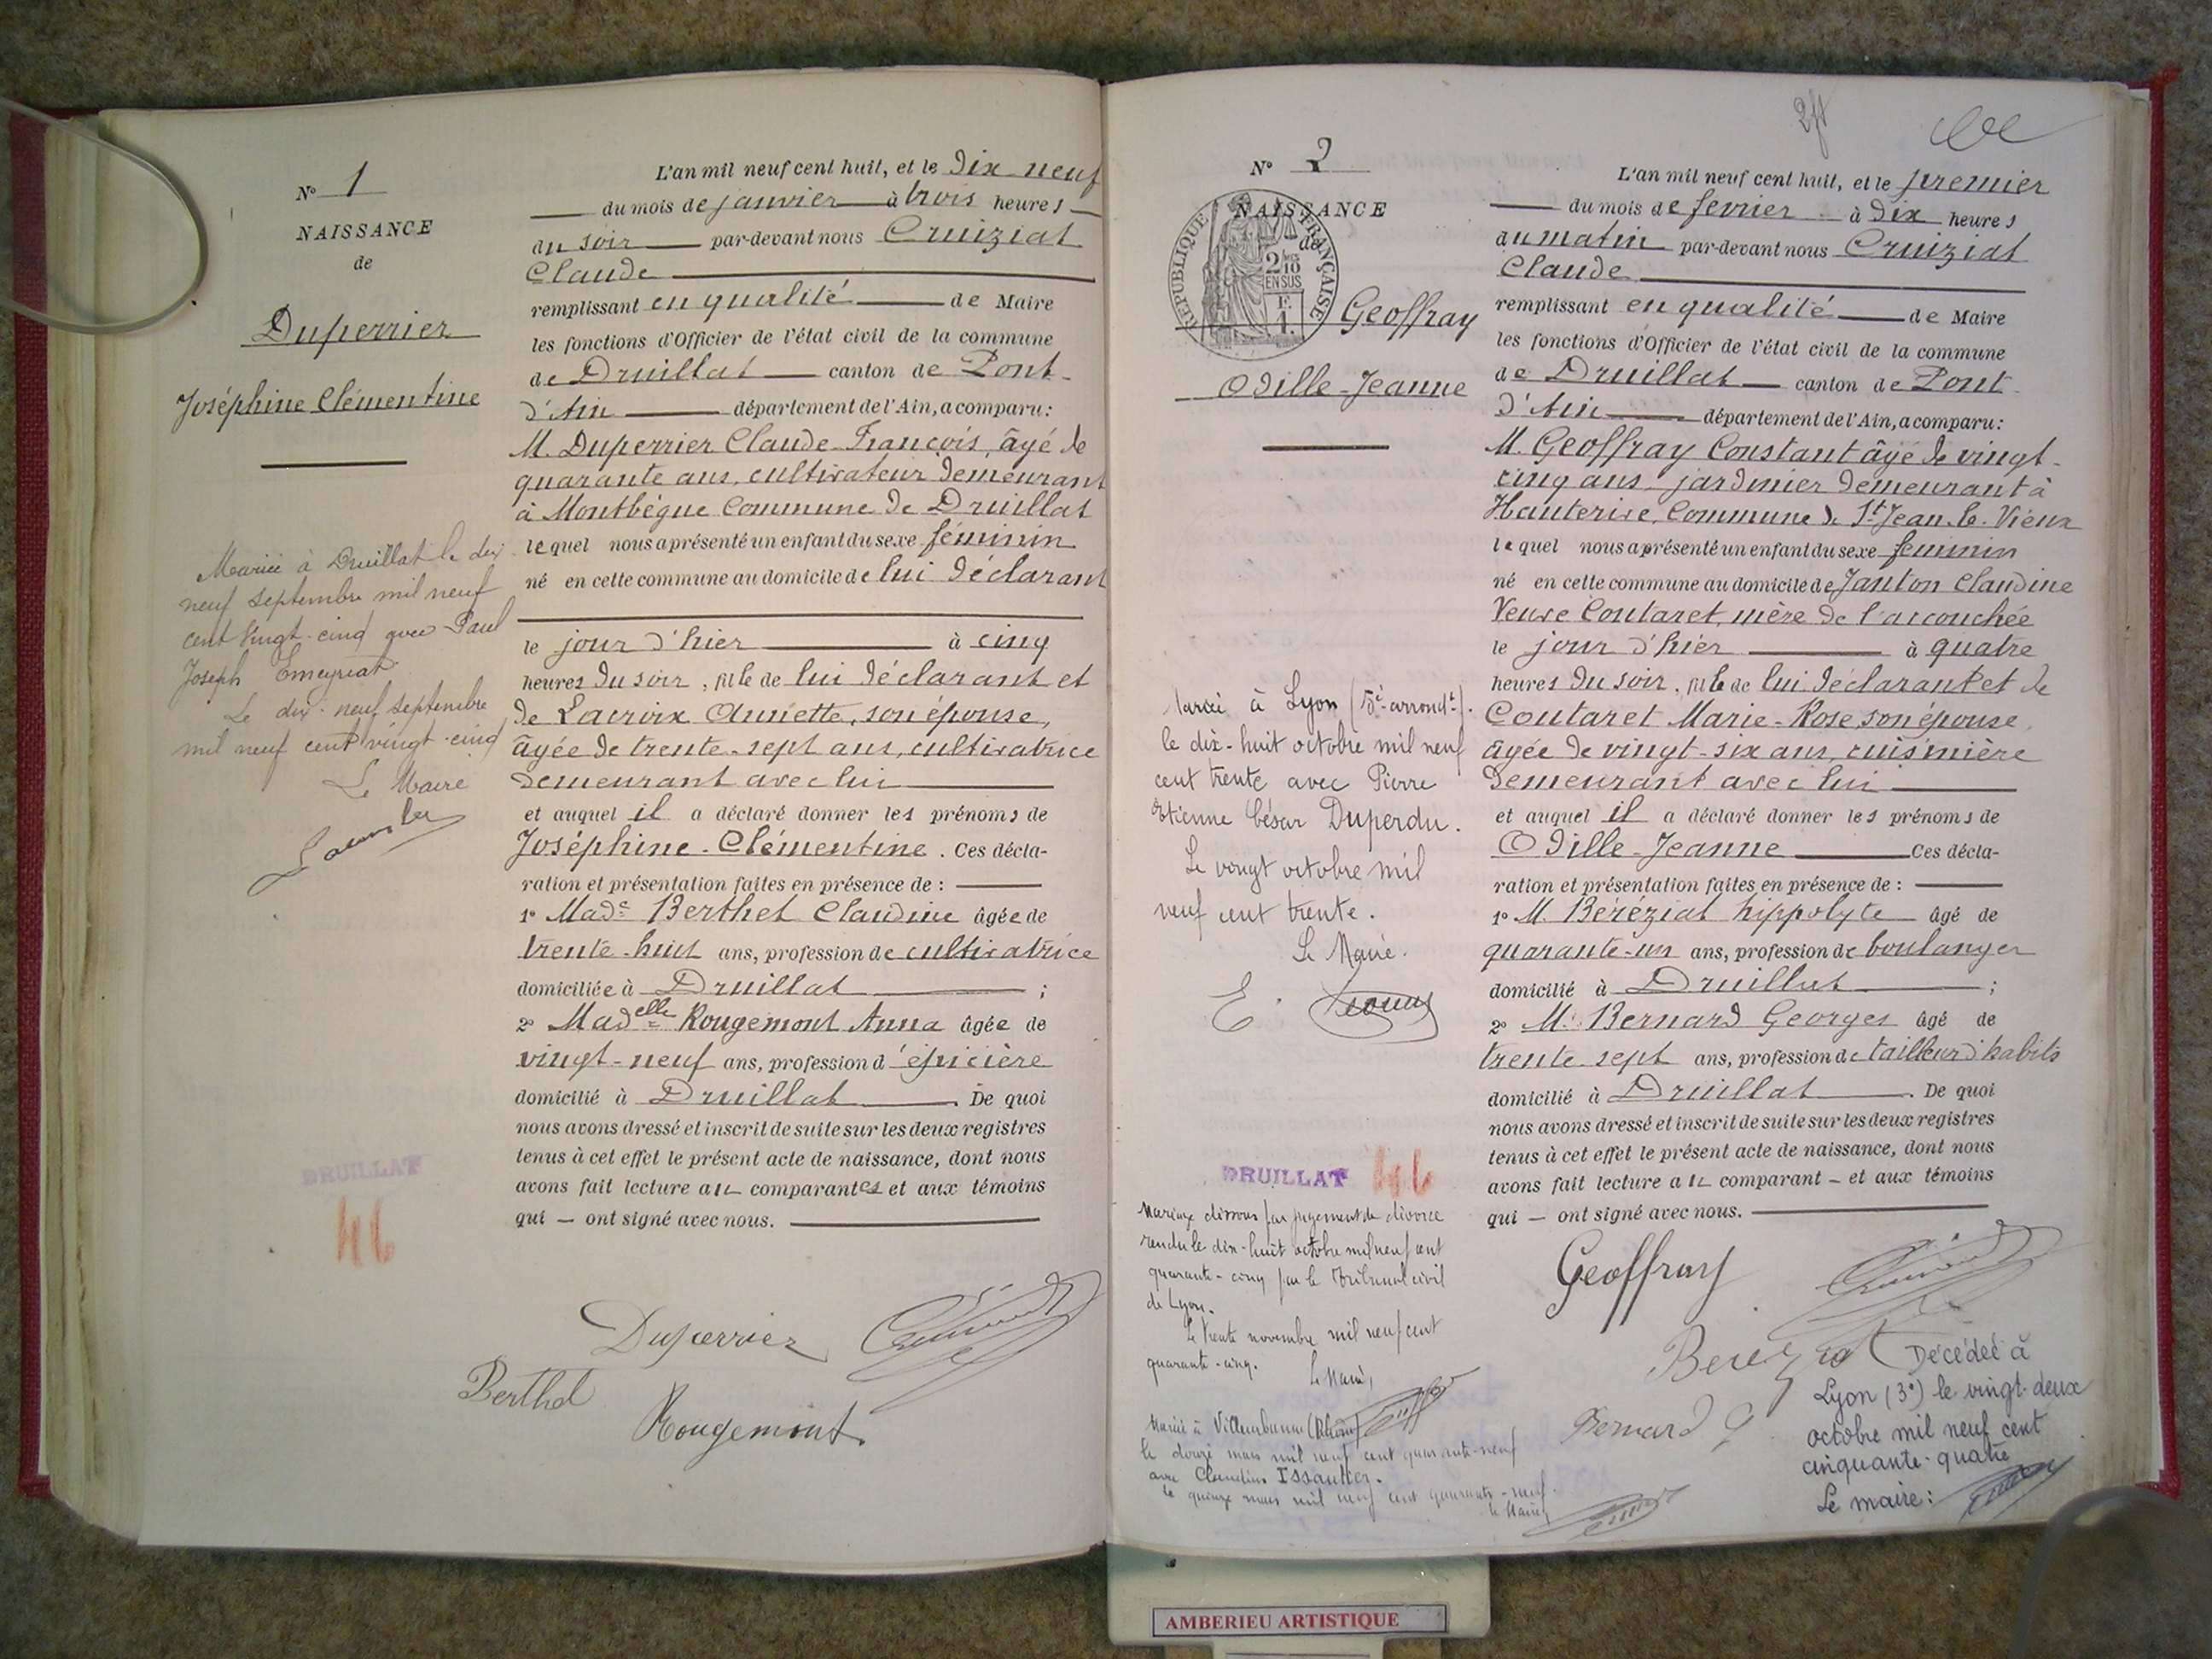 N° 1
NAISSANCE
de
Duperrier
Joséphine Clémentine
Mariée à Druillat le dix
neuf septembre mil neuf
cent vingt-cinq avec Paul
Joseph Emeyriat
Le dix-neuf septembre
mil neuf cent vingt-cinq
Le Maire
DRUILLAT
46
L'an mil neuf cent huit, et le dix neuf
du mois de janvier à trois heures
du soir par-devant nous Cruiziat
Claude
remplissant en qualité de Maire
les fonctions d'Officier de l'état civil de la commune
de Druillat canton de Pont-
d'Ain département de l'Ain, a comparu:
M. Duperrier Claude-François, âgé de
quarante ans, cultivateur demeurant
à Montbègue Commune de Druillat
lequel nous a présenté un enfant du sexe féminin
né en cette commune au domicile de lui déclarant
le jour d'hier à cinq
heures du soir, fille de lui déclarant et
de Lacroix Annette, son épouse,
âgée de trente-sept ans, cultivatrice
demeurant avec lui
et auquel il a déclaré donner les prénoms de
Joséphine-Clémentine. Ces décla-
ration et présentation faites en présence de :
1° Made Berthet Claudine âgée de
trente-huit ans, profession de cultivatrice
domiciliée à Druillat ;
2° Madelle Rougemont Anna âgée de
vingt-neuf ans, profession d'épicière
domicilié à Druillat. De quoi
nous avons dressé et inscrit de suite sur les deux registres
tenus à cet effet le présent acte de naissance, dont nous
avons fait lecture aux comparants et aux témoins
qui — ont signé avec nous.
Duperrier
Berthet
Rougemont
N° 2
NAISSANCE
de
REPUBLIQUE FRANÇAISE
2/10
EN SUS
F.
1.
Geoffray
Odille-Jeanne
Mariée à Lyon (5e arrondt).
le dix-huit octobre mil neuf
cent trente avec Pierre
Etienne César Duperdu.
Le vingt octobre mil
neuf cent trente.
Le Maire.
DRUILLAT 46
Mariage dissous par jugement de divorce
rendu le dix-huit octobre mil neuf cent
quarante-cinq par le Tribunal civil
de Lyon.
Le trente novembre mil neuf cent
quarante-cinq.
Le Maire,
Mariée à Villeurbanne (Rhône)
le douze mars mil neuf cent quarante-neuf
avec Claudius Issautier.
le quinze mars mil neuf cent quarante-neuf.
le Maire,
L'an mil neuf cent huit, et le premier
du mois de fevrier à dix heures
du matin par-devant nous Cruiziat
Claude
remplissant en qualité de Maire
les fonctions d'Officier de l'état civil de la commune
de Druillat canton de Pont
d'Ain département de l'Ain, a comparu:
M. Geoffray Constant âgé de vingt-
cinq ans jardinier demeurant à
Hauterive, Commune de St Jean-le-Vieux
lequel nous a présenté un enfant du sexe feminin
né en cette commune au domicile de Janton Claudine
Veuve Coutaret, mère de l'accouchée
le jour d'hier à quatre
heures du soir, fille de lui déclarant et de
Coutaret Marie-Rose son épouse
âgée de vingt-six ans, cuisinière
demeurant avec lui
et auquel il a déclaré donner les prénoms de
Odille-Jeanne Ces décla-
ration et présentation faites en présence de :
1° M. Béréziat hippolyte âgé de
quarante-un ans, profession de boulanger
domicilié à Druillat ;
2° M. Bernard Georges âgé de
trente sept ans, profession de tailleur d'habits
domicilié à Druillat. De quoi
nous avons dressé et inscrit de suite sur les deux registres
tenus à cet effet le présent acte de naissance, dont nous
avons fait lecture au comparant — et aux témoins
qui — ont signé avec nous.
Geoffray
Bereziat
Bernard G
Décédée à
Lyon (3e) le vingt-deux
octobre mil neuf cent
cinquante-quatre
Le maire:
AMBERIEU ARTISTIQUE